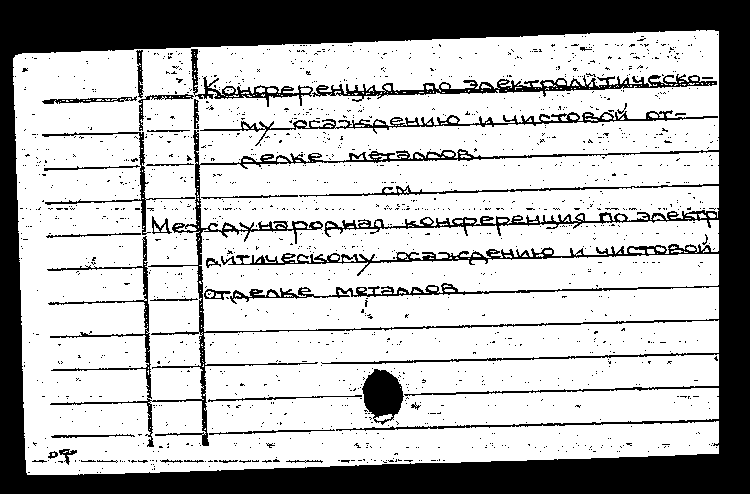 Конференция по электролитическо=
му осаждению и чистовой от=
делке металлов.
см.
Международная конференция по электр
литическому осаждению и чистовой
отделке металлов